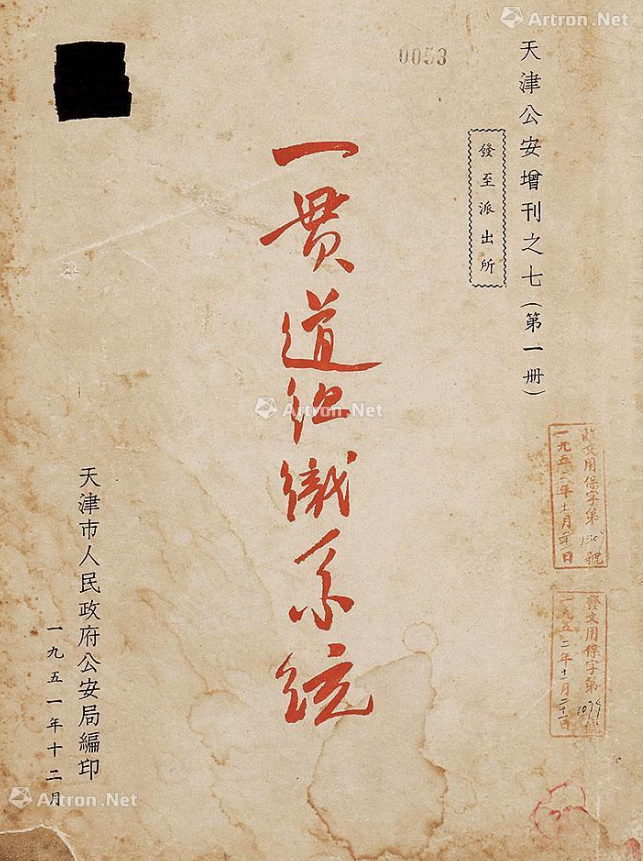 Artron.Net
0053
天津公安增刊之七(第一册)
發至派出所
一贯道组織系统
Artron.Net
收文用保字第 號
一九五二年十一月 日
發文用保字第1079號
一九五二年十一月二十一日
天津市人民政府公安局編印
一九五一年十二月
Artron.Net